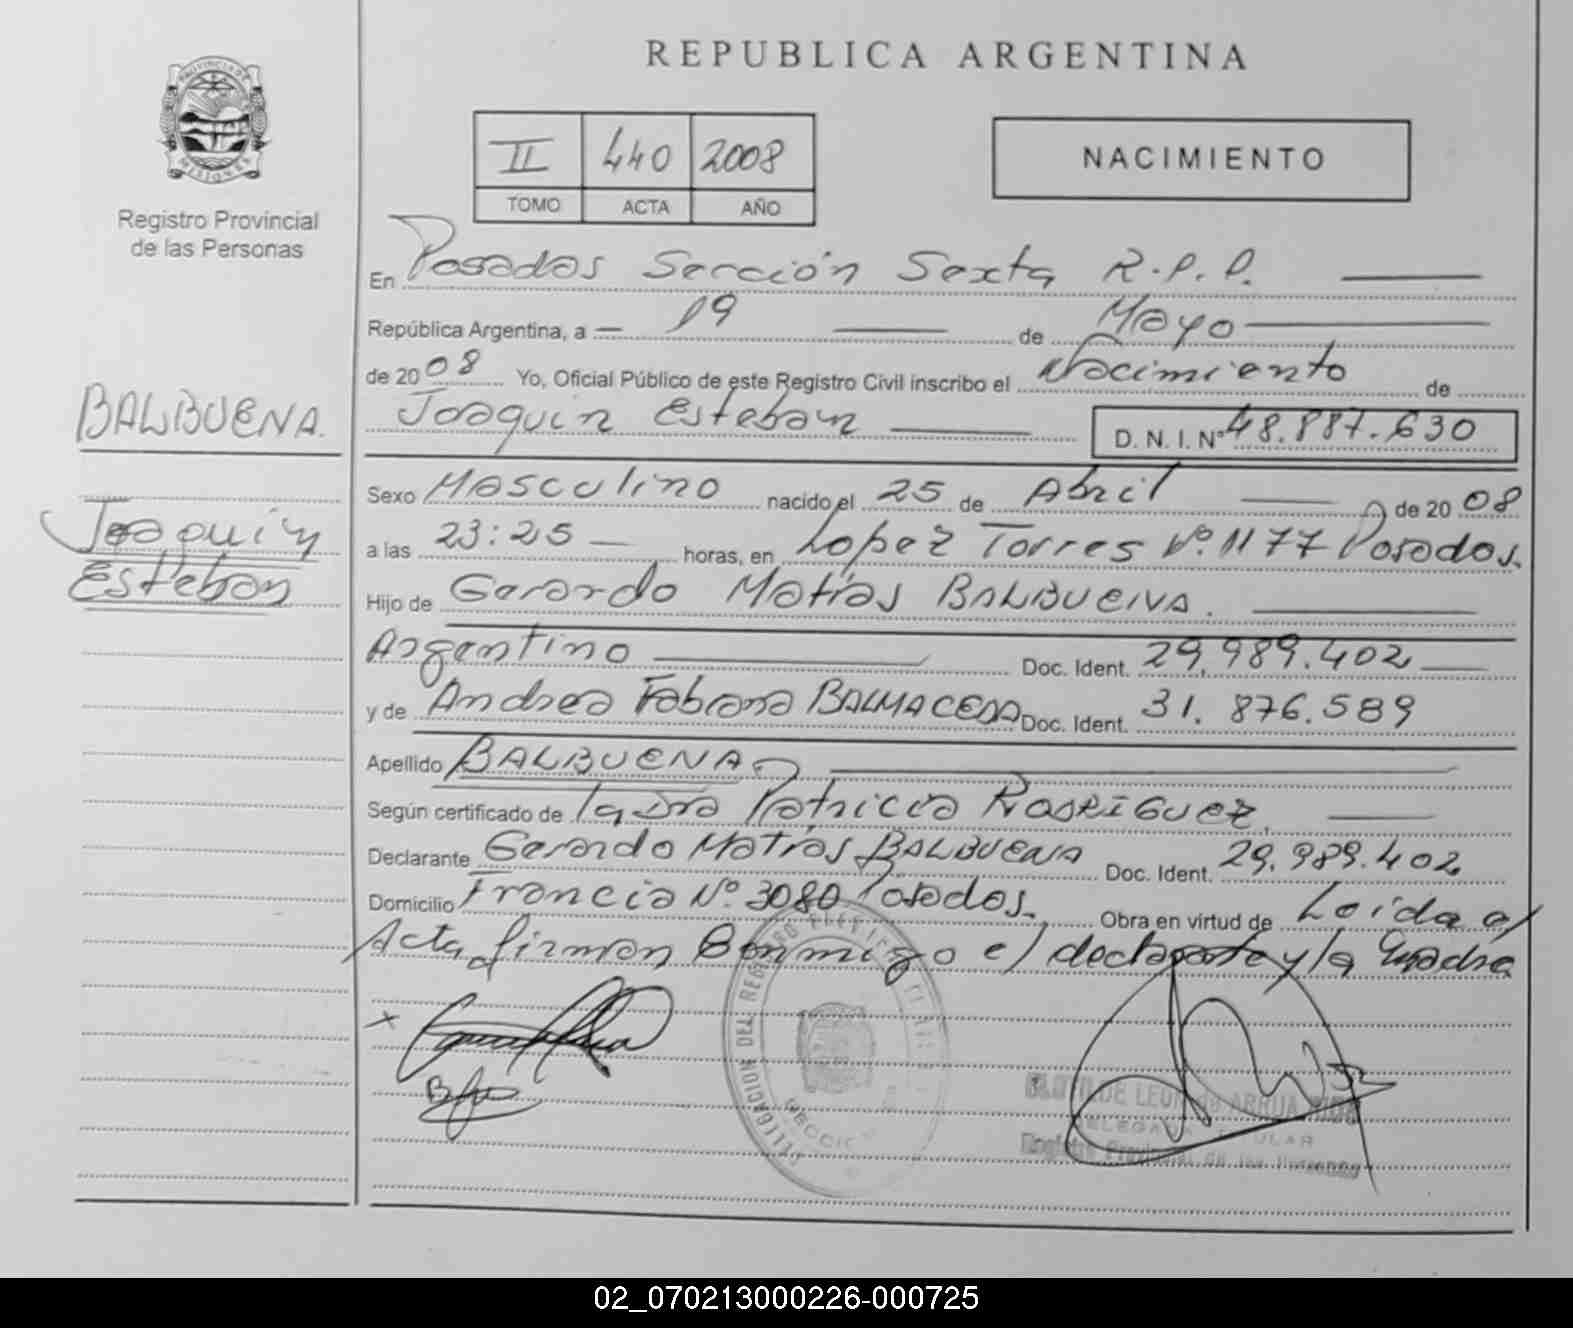 REPUBLICA ARGENTINA
PROVINCIA DE
MISIONES
Registro Provincial
de las Personas
II 440 2008
TOMO ACTA AÑO
NACIMIENTO
En Posadas Sección Sexta R.P.P.
República Argentina, a 19 de Mayo
de 2008 Yo, Oficial Público de este Registro Civil inscribo el Nacimiento de
BALBUENA.
Joaquín Esteban D. N. I. Nº 48.887.630
Joaquín
Esteban
Sexo Masculino nacido el 25 de Abril de 2008
a las 23:25 horas, en Lopez Torres Nº 1177 Posadas.
Hijo de Gerardo Matías BALBUENA.
Argentino Doc. Ident. 29.989.402
y de Andrea Fabiana BALMACEDA Doc. Ident. 31.876.589
Apellido BALBUENA
Según certificado de la Dra Patricia RODRIGUEZ
Declarante Gerardo Matías BALBUENA Doc. Ident. 29.989.402
Domicilio Francia Nº 3080 Posadas. Obra en virtud de Leída el
Acta firman conmigo el declarante y la madre
DELEGACION DEL REGISTRO
LEON de ARRUA
Registro Provincial de las Personas
02_070213000226-000725